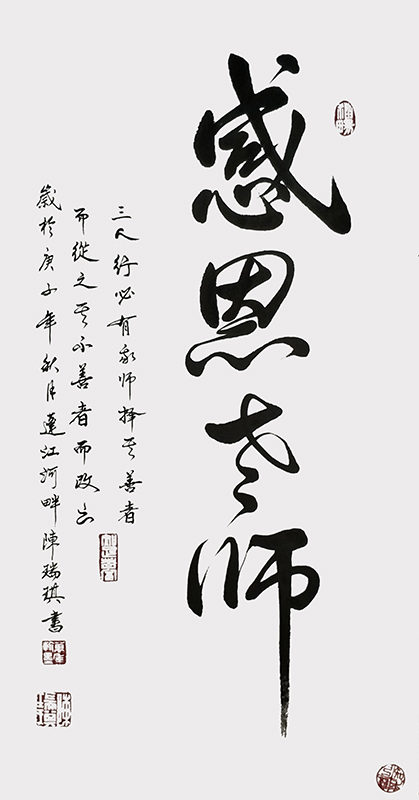 感恩老师
三人行必有我师择其善者
而從之其不善者而改之
歲於庚子年秋月蓬江河畔陳瑞琪書